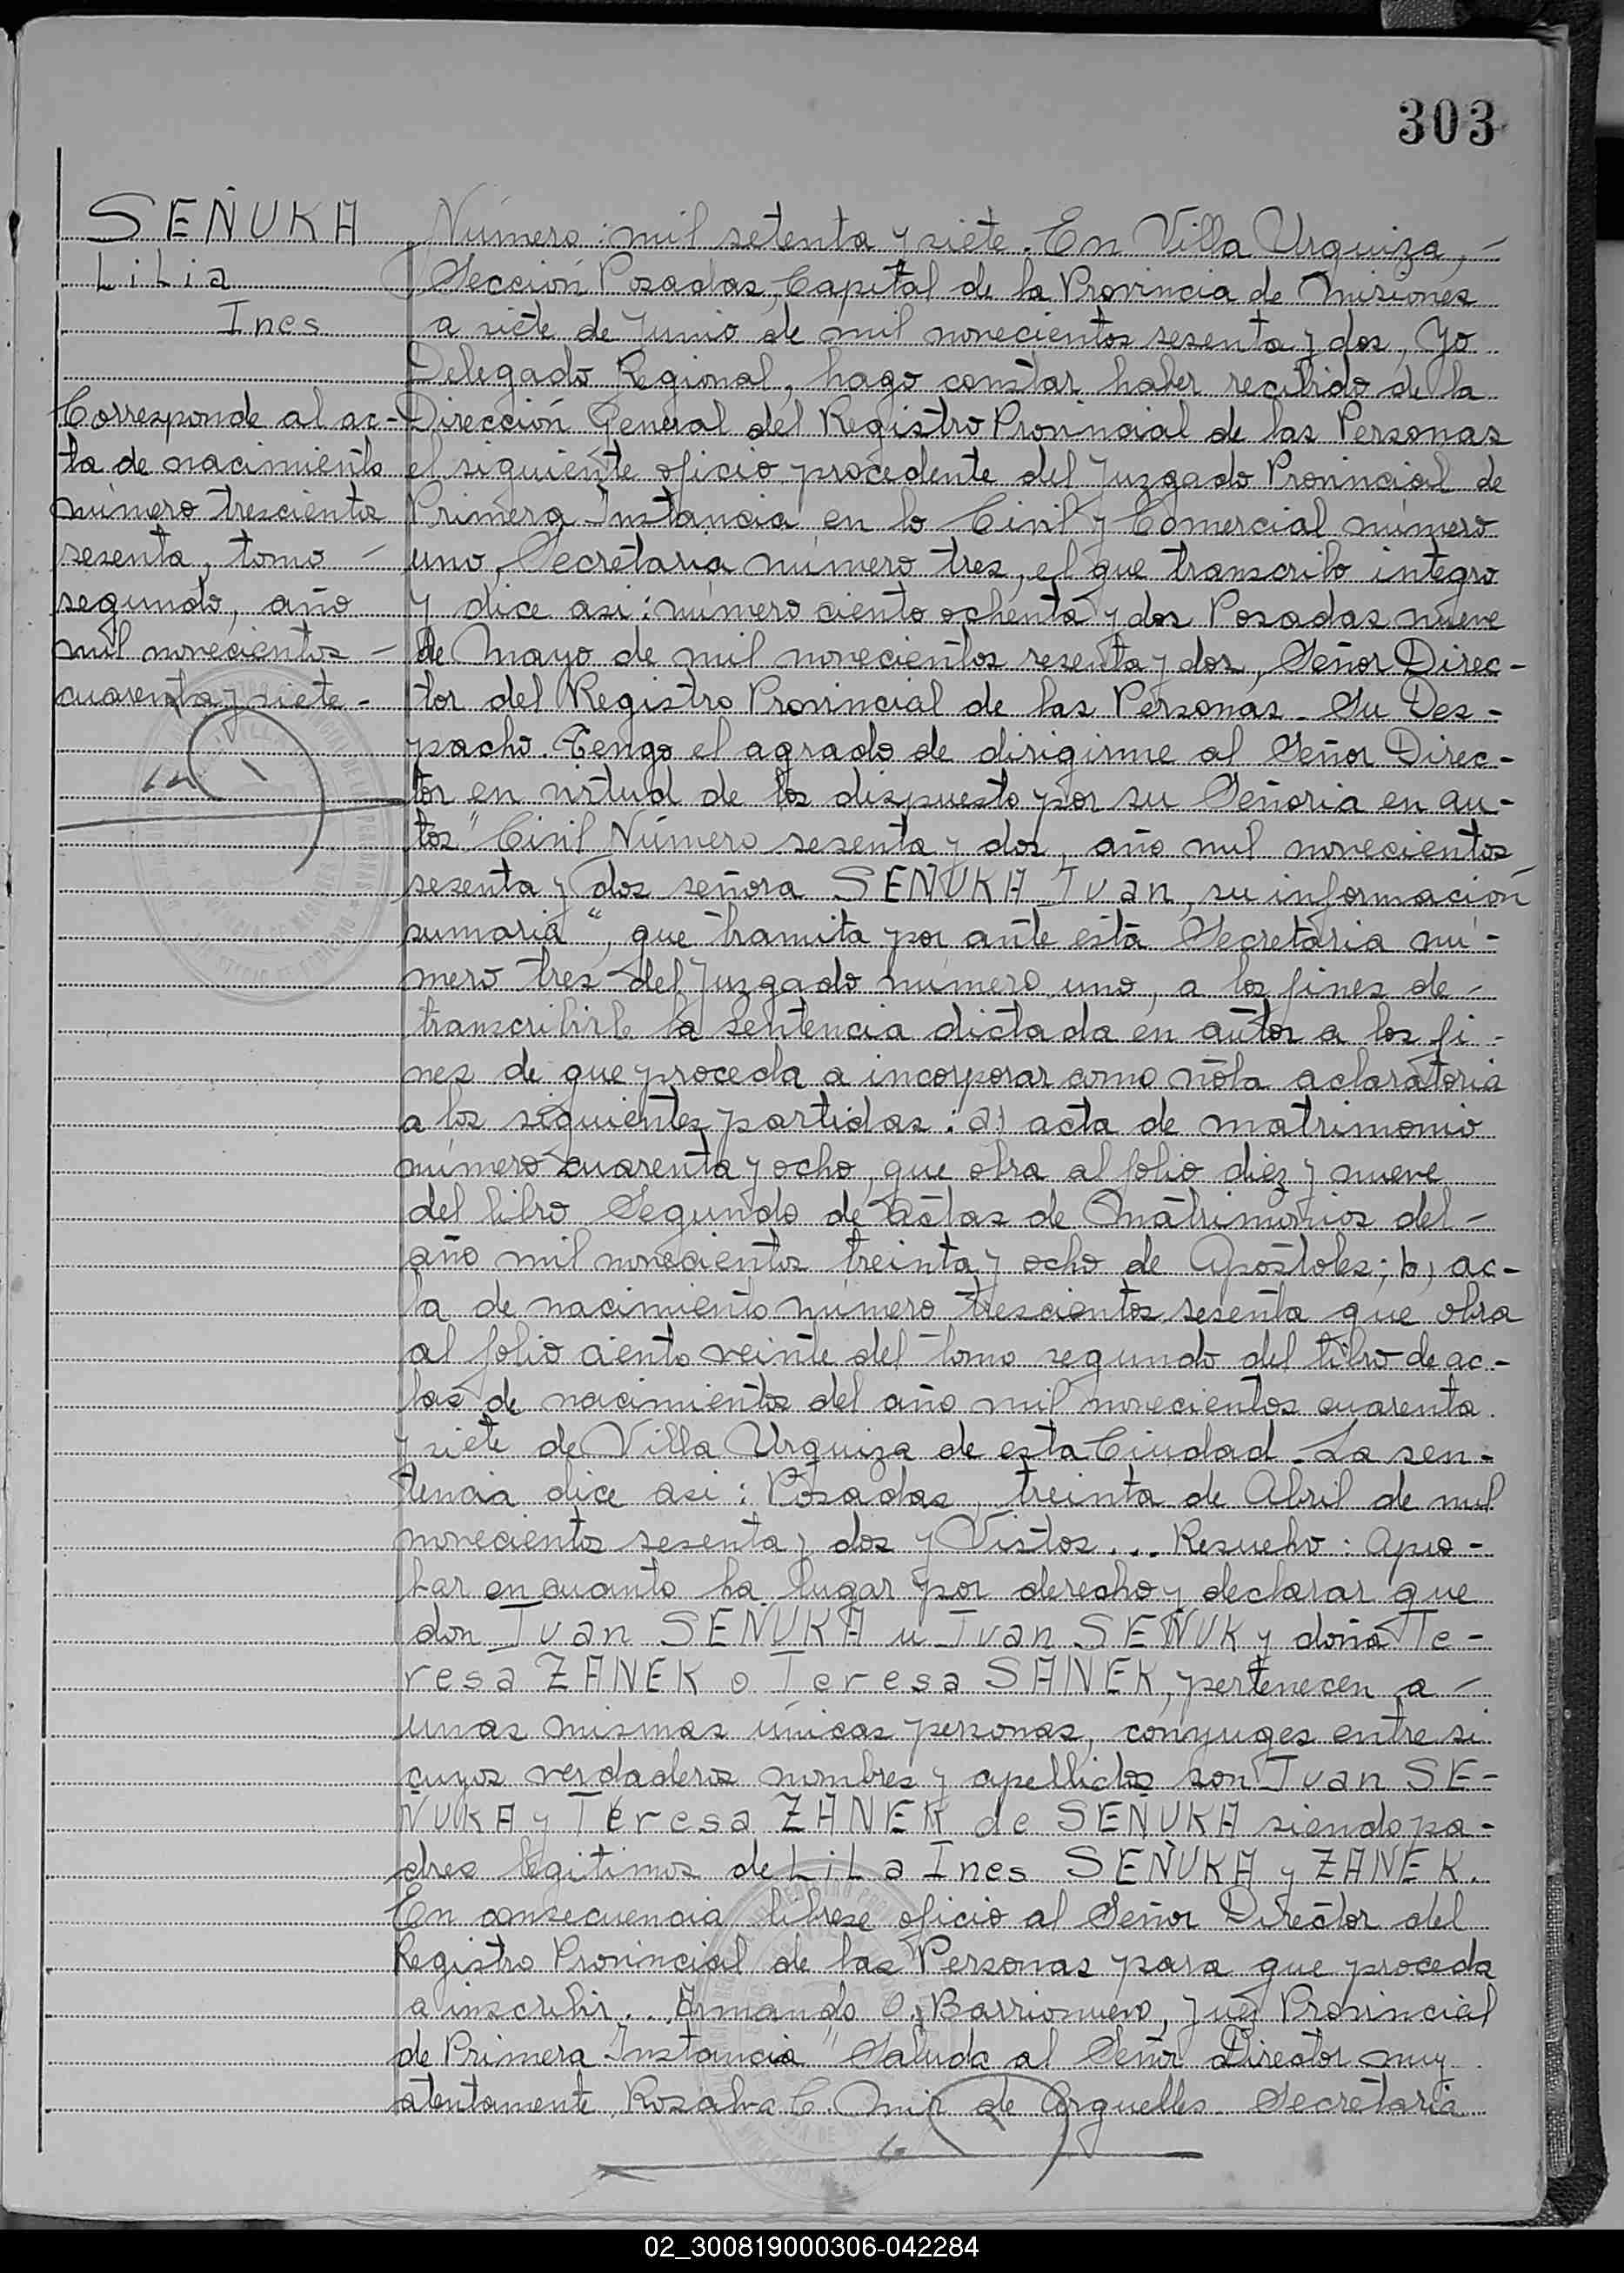 303
SEÑUKA
LiLia
Ines
Corresponde al ac-
ta de nacimiento
número trescientos
sesenta, tomo -
segundo, año
mil novecientos -
cuarenta y siete -
Número: mil setenta y siete. En Villa Urquiza, -
Sección Posadas, Capital de la Provincia de Misiones
a siete de Junio de mil novecientos sesenta y dos, Yo
Delegado Regional, hago constar haber recibido de la
Dirección General del Registro Provincial de las Personas
el siguiente oficio procedente del Juzgado Provincial de
Primera Instancia en lo Civil y Comercial número
uno, Secretaria número tres, el que transcribo integro
y dice asi: número ciento ochenta y dos Posadas nueve
de Mayo de mil novecientos sesenta y dos, Señor Direc-
tor del Registro Provincial de las Personas - Su Des-
pacho. Tengo el agrado de dirigirme al Señor Direc-
tor en virtud de los dispuesto por su Señoria en au-
tos "Civil Número sesenta y dos, año mil novecientos
sesenta y dos señora SEÑUKA Ivan, su información
sumaria", que tramita por ante esta Secretaria nú-
mero tres del Juzgado número uno, a los fines de -
transcribirle la sentencia dictada en autos a los fi-
nes de que proceda a incorporar como nota aclaratoria
a los siguientes partidas: a) acta de matrimonio
número cuarenta y ocho, que obra al folio diez y nueve
del libro Segundo de Actas de Matrimonios del -
año mil novecientos treinta y ocho de Apóstoles; b) ac-
ta de nacimiento número trescientos sesenta que obra
al folio ciento veinte del tomo segundo del libro de ac-
tas de nacimientos del año mil novecientos cuarenta
y siete de Villa Urquiza de esta Ciudad. La sen-
tencia dice asi: Posadas, treinta de Abril de mil
novecientos sesenta y dos y Vistos... Resuelvo: Apro-
bar en cuanto ha lugar por derecho y declarar que
don Ivan SEÑUKA u Ivan SEÑUK y doña Te-
resa ZANEK o Teresa SANEK, pertenecen a -
unas mismas únicas personas, conyuges entre si
cuyos verdaderos nombres y apellidos son Ivan SE-
ÑUKA y Teresa ZANEK de SEÑUKA siendo pa-
dres legitimos de LiLa Ines SEÑUKA y ZANEK.
En consecuencia librese oficio al Señor Director del
Registro Provincial de las Personas para que proceda
a inscribir... Armando O. Barrionuevo, Juez Provincial
de Primera Instancia" Saluda al Señor Director muy
atentamente, Rosalva C. Amir de Arguelles - Secretaria
02_300819000306-042284